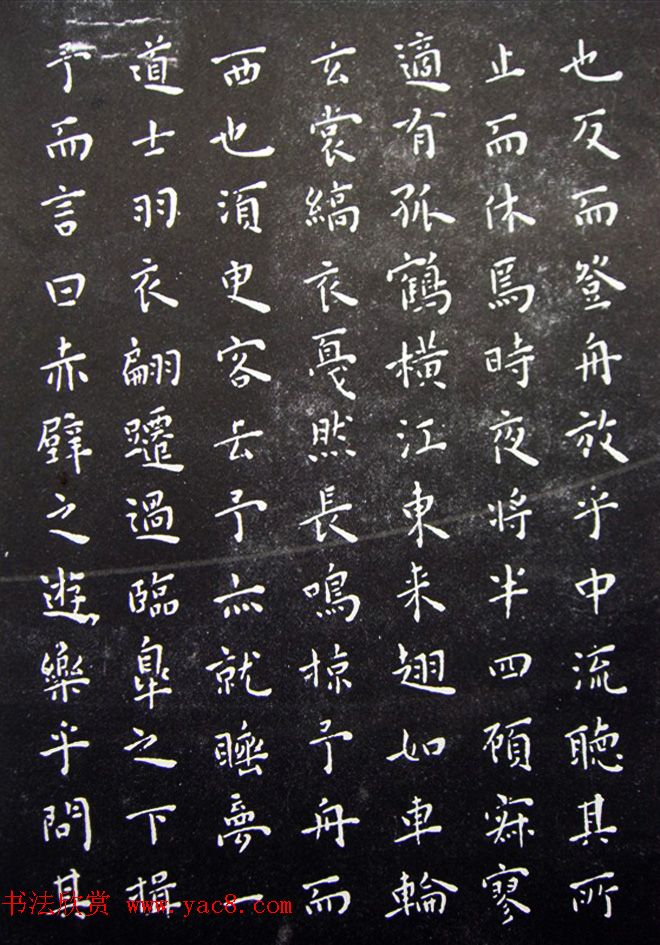 也反而登舟放乎中流聽其所
止而休焉時夜將半四顧寂寥
適有孤鶴橫江東来翅如車輪
玄裳縞衣戞然長鳴掠予舟而
西也須臾客去予亦就睡夢一
道士羽衣翩躚過臨皋之下揖
予而言曰赤壁之遊樂乎問其
书法欣赏 www.yac8.com